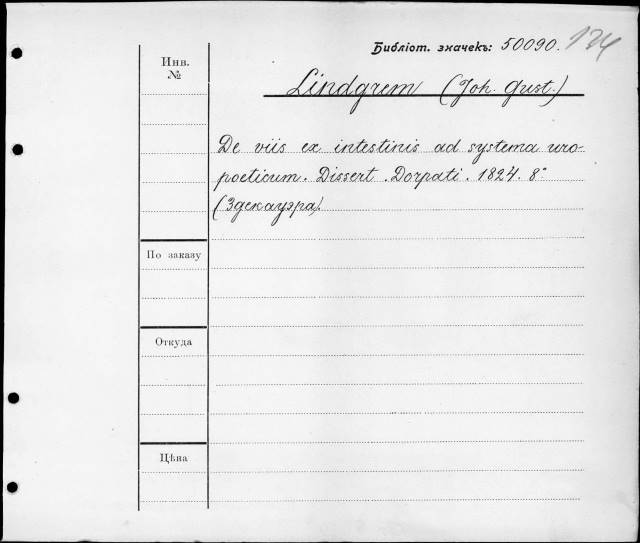 Библіот. значекъ: 50090. 124
Инв. №
Lindgrem (Joh. Gust.)
De viis ex intestinis ad systema uro-
poeticum. Dissert. Dorpati. 1824. 8°
(Здекауэра).
По заказу
Откуда
Цѣна